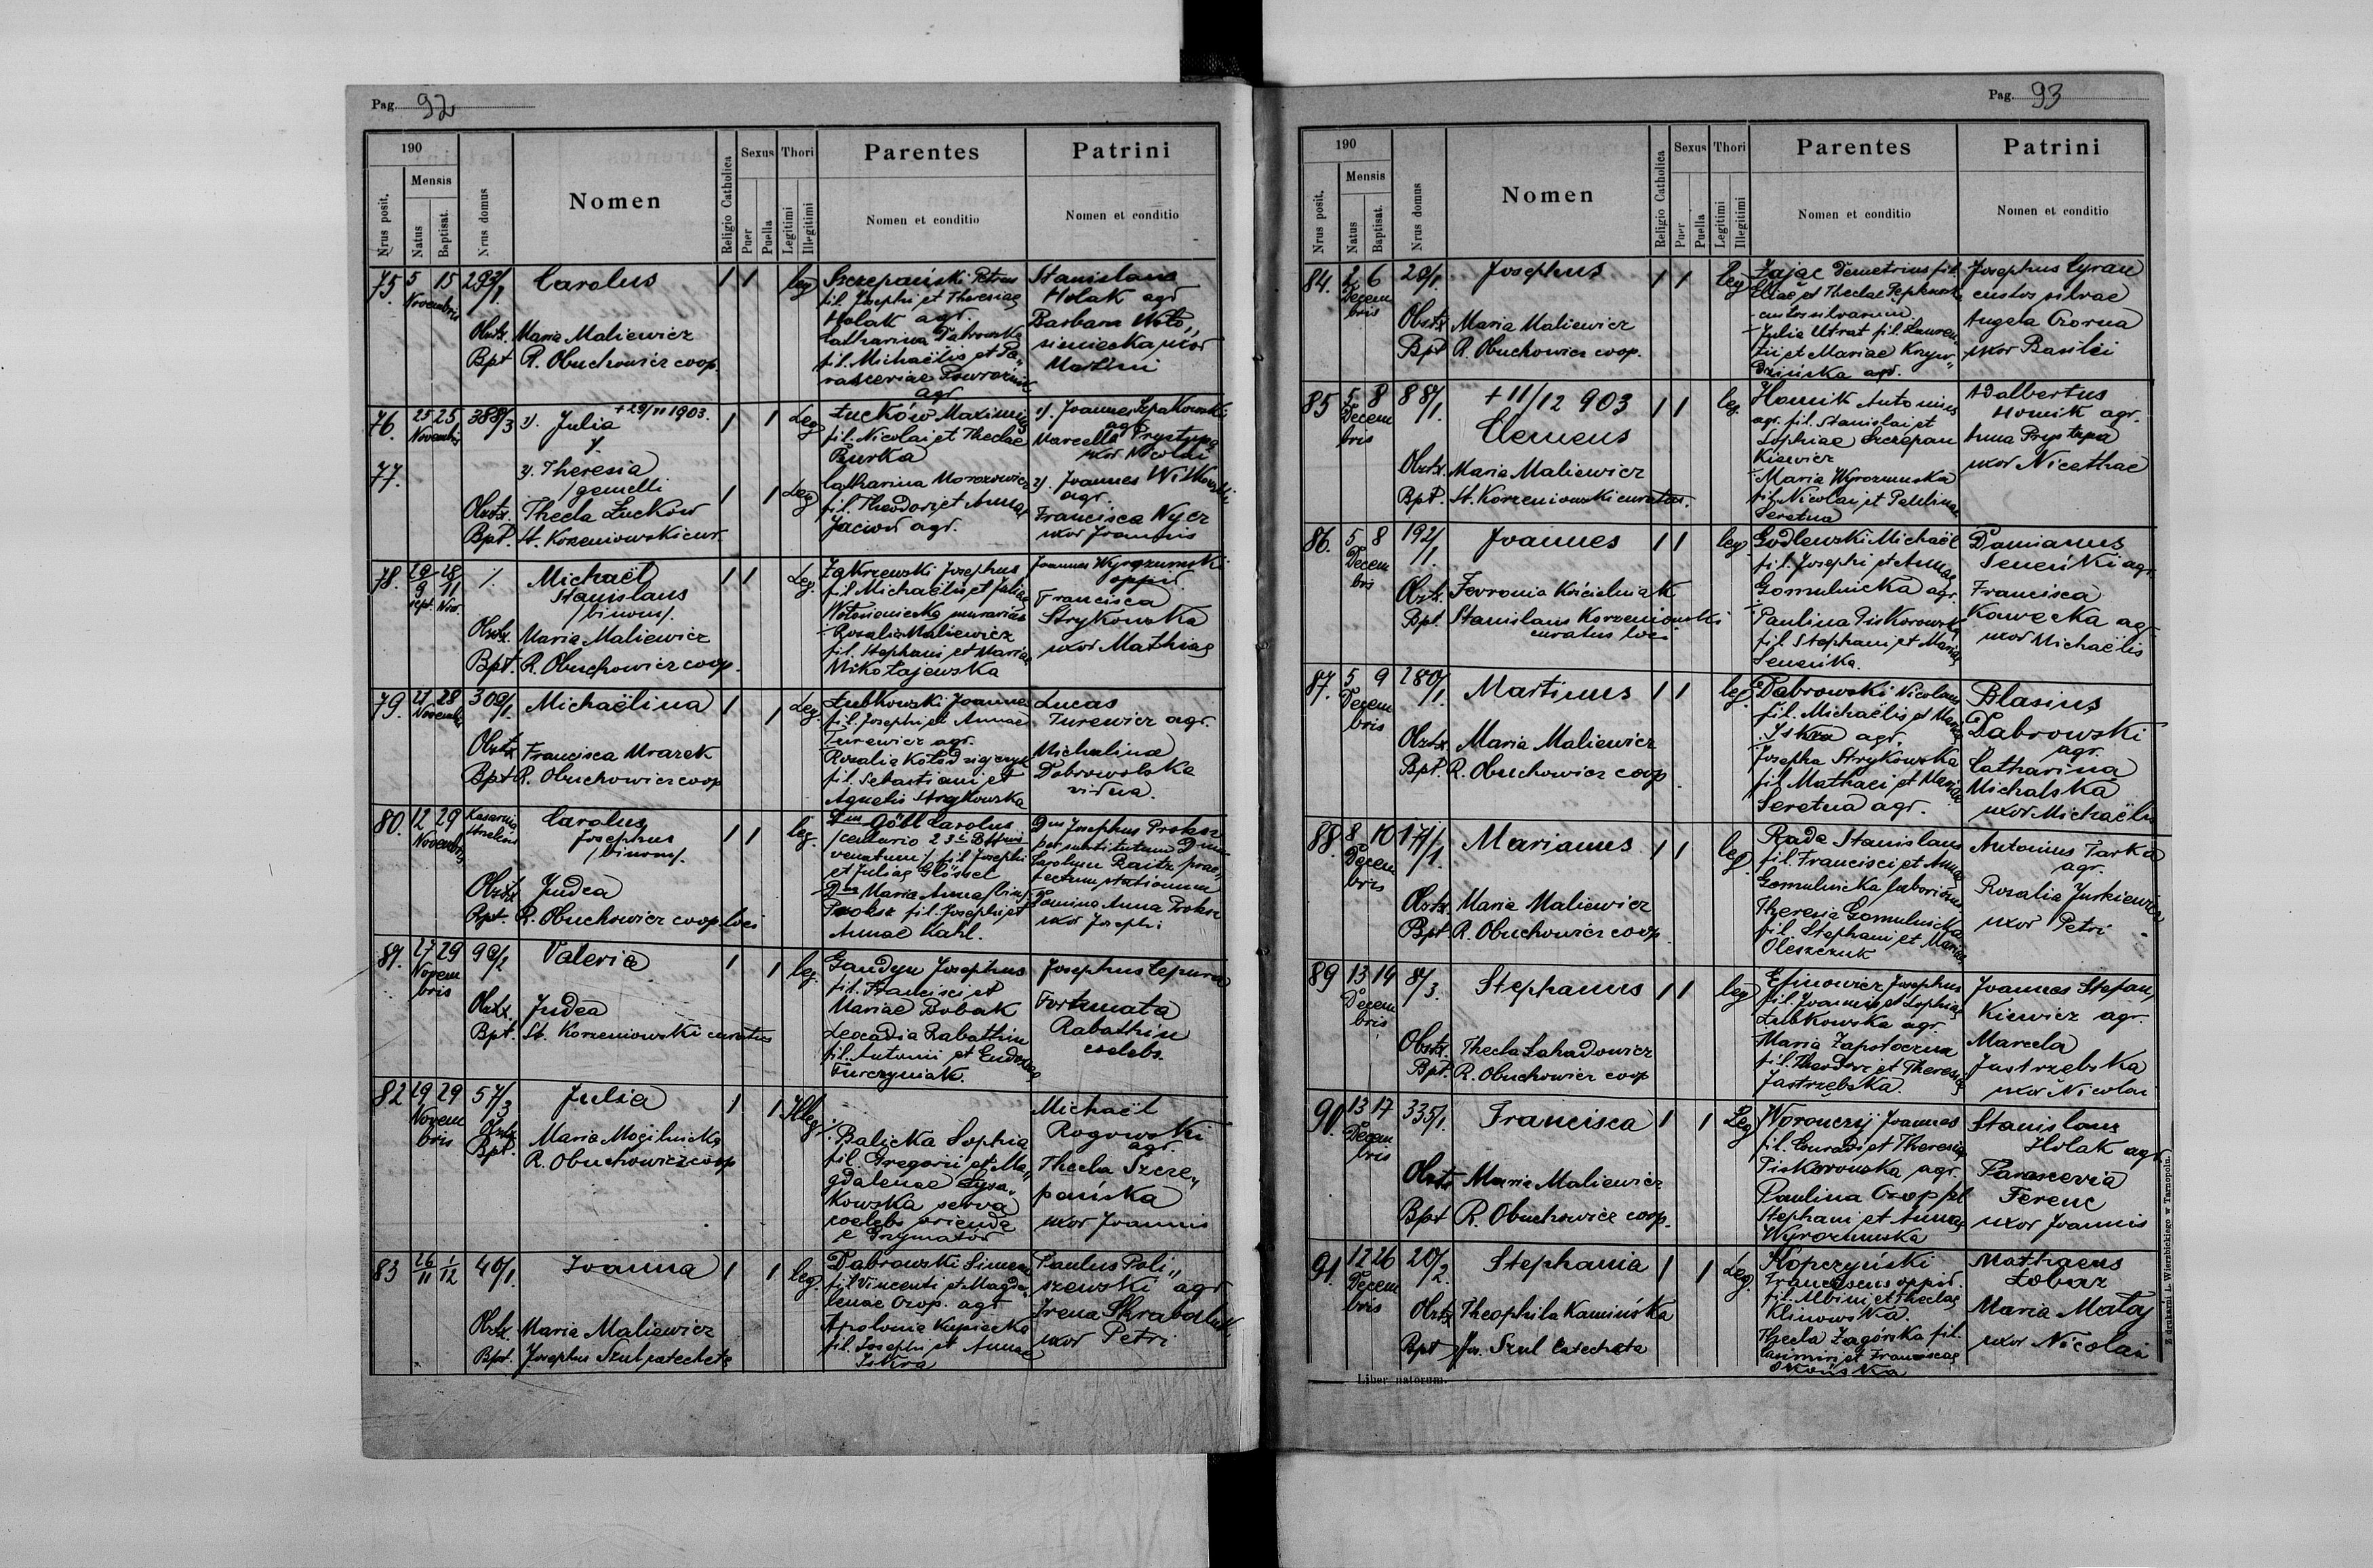 Pag. 92
190
Nrus posit.
Mensis
Natus
Baptisat.
Nrus domus
Nomen
Religio Catholica
Sexus
Puer
Puella
Thori
Legitimi
Illegitimi
Parentes
Nomen et conditio
Patrini
Nomen et conditio
75. 5 15 293/1. Carolus 1 1 leg
Novembris
Obstx. Maria Maliewicz
Bpt R. Obuchowicz coop.
Szczepański Petrus
fil. Josephi et Theresiae
Holak agr.
Catharina Dabrowska
fil. Michaëlis et Pa„
rasceviae Powroźnik
agr
Stanislaus
Holak agr
Barbara Woło„
sieniecka uxor
Martini
76. 25 25 388/3 1). Julia +29/11 1903. 1 1 Leg
Novembris
77. 2). Theresia
/gemelli 1 1 Leg
Obstx. Thecla Łucków
Bpt. St. Korzeniowski cur.
Łucków Maximus
fil. Nicolai et Theclae
Burka
Catharina Morozowicz
fil. Theodori et Annae
Jaciow agr.
1). Joannes Szpakowski
agr
Marcella Prystupa
uxor Nicolai
2). Joannes Witkowski
agr.
Francisca Nycz
uxor Joannis
78. 29/9 28/11 /. Michaël 1 1 Leg.
Sept. Nov. Stanislaus
/binom/.
Obstx. Maria Maliewicz
Bpt. R. Obuchowicz coop.
Zakrzewski Josephus
fil Michaëlis et Juliae
Wołosieniecka murarius
Rosalia Maliewicz
fil. Stephani et Mariae
Mikołajewska
Joannes Wyrozumski
oppid.
Francisca
Strykowska
uxor Mathiae
79. 21 28 300/1. Michaëlina 1 1 Leg.
Novembris
Obstx Francisca Mrazek
Bpt R. Obuchowicz coop
Łubkowski Joannes
fil. Josephi et Annae
Turewicz agr.
Rosalia Kołodziejczyk
fil. Sebastiani et
Agnetis Strykowska
Lucas
Turewicz agr.
Michalina
Dobrowolska
vidua.
80. 12 29 Kasarnia Carolus 1 1 leg.
Novembris Josephus
/binom/.
Obstx Judea
Bpt. R. Obuchowicz coop loci
Dnus Göbl Carolus
venatum / fil Josephi
et Juliae Glössel
Dna Maria Anna /binom/
Proksz fil. Josephi et
Annae Kahl.
Dnus Josephus Proksz
per substitutum Dnum
Carolum Raitz prae„
fectum stationum
Domina Anna Proksz
uxor Josephi
81. 27 29 99/2 Valeria 1 1 leg.
Novem
bris
Obstx. Judea
Bpt. St. Korzeniowski curatus
Gaudyn Josephus
fil. Francisci et
Mariae Bobak
Leocadia Rabathin
fil. Antonii et Eudoxiae
Turczyniak.
Josephus Cepura
Fortunata
Rabathin
coelebs.
82 29 29 57/3 Julia 1 1 Illeg.
Novem
bris
Obstx Maria Mogilnicka
Bpt. R. Obuchowicz coop
Balicka Sophia
fil. Gregorii et Ma„
gdalenae Lysa„
kowska serva
coelebs oriunda
e Grzymałów
Michaël
Rogowski
agr.
Thecla Szcze„
pańska
uxor Joannis
83 26/11 1/12 40/1. Joanna 1 1 leg.
Obstx. Maria Maliewicz
Bpt. Josephus Szul catecheta
Dabrowski Simeon
fil Vincenti et Magda„
lenae Czop. agr
Apolonia Kupiecka
fil. Josephi et Annae
Iskra
Paulus Poli„
szewski agr
Irena Skrabaluk
uxor Petri
Pag. 93
190
Nrus posit.
Mensis
Natus
Baptisat.
Nrus domus
Nomen
Religio Catholica
Sexus
Puer
Puella
Thori
Legitimi
Illegitimi
Parentes
Nomen et conditio
Patrini
Nomen et conditio
84. 2 6 29/1. Josephus 1 1 leg
Decem
bris
Obstx Maria Maliewicz
Bpt R. Obuchowicz coop.
Zając Demetrius fil.
Eliae et Theclae
custos silvarum
Julia Utrat fil. Lauren„
tii et Mariae Krzyw„
dzińska agr.
Josephus Cyran
custos silvae
Angela Czorna
uxor Basilii
85 5 8 88/1. +11/12 903 1 1 leg.
Decem
bris Clemens
Obstx. Maria Maliewicz
Bpt. St. Korzeniowski curatus.
Homik Antonius
agr. fil. Stanislai et
Sophiae Szczepan
kiewicz
Maria Wyrozumska
fil. Nicolai et Paulinae
Seretna
Adalbertus
Homik agr.
Anna Prystupa
uxor Nicethae
86. 5 8 192/1. Joannes 1 1 leg.
Decem
bris
Obstx. Fevronia Kościelniak
Bpt. Stanislaus Korzeniowski
curatus loci
Godlewski Michaël
fil. Josephi et Annae
Gomulnicka agr.
Paulina Piskorowska
fil. Stephani et Mariae
Seneńka.
Damianus
Seneńki agr.
Francisca
Kawecka agr
uxor Michaëlis
87. 5 9 280/1. Martinus 1 1 leg.
Decem
bris
Obstx. Maria Maliewicz
Bpt. R. Obuchowicz coop
Dabrowski Nicolaus
fil. Michaëlis et Mariae
Iskra agr.
Josepha Strykowska
fil. Mathaei et Mariae
Seretna agr.
Blasius
Dabrowski
agr.
Catharina
Michalska
uxor Michaëlis
88. 8 10 174/1. Marianus 1 1 leg.
Decem
bris
Obstx. Maria Maliewicz
Bpt R. Obuchowicz coop
Rada Stanislaus
fil. Francisci et Annae
Gomulnicka laborious
Theresia Gomulnicka
fil. Stephani et Mariae
Oleszczuk
Antonius Tarka
agr.
Rosalia Jurkiewicz
uxor Petri
89 13 14 8/3. Stephanus 1 1 leg
Decem
bris
Obstx. Thecla Zahadowicz
Bpt. R. Obuchowicz coop
Efinowicz Josephus
fil. Joannis et Sophiae
Łubkowska agr.
Maria Zapotoczna
fil. Theodori et Theresiae
Jastrzębska.
Joannes Stefan„
kiewicz agr.
Marcela
Jastrzebska
uxor Nicolai
90. 13 17 335/1. Francisca 1 1 Leg
Decem
bris
Obstx Maria Maliewicz
Bpt R. Obuchowicz coop.
Woronczyj Joannes
fil. Conradi et Theresiae
Piskorowska agr.
Paulina Czop fil
Stephani et Annae
Wyrozumska
Stanislaus
Holak agr.
Parascevia
Ferenc
uxor Joannis
91. 12 26 20/2. Stephania 1 1 Leg.
Decem
bris
Obstx Theophila Kamińska
Bpt Jos. Szul catecheta
Kopczyński
Franciscus oppid.
fil. Albini et Theclae
Klinowska.
Thecla Zagórska fil.
Casimiri et Franciscae
Skońska
Mathaeus
Łobaz
Maria Mataj
uxor Nicolai
Liber natorum.
Z drukarni L. Wierzbickiego w Tarnopolu.